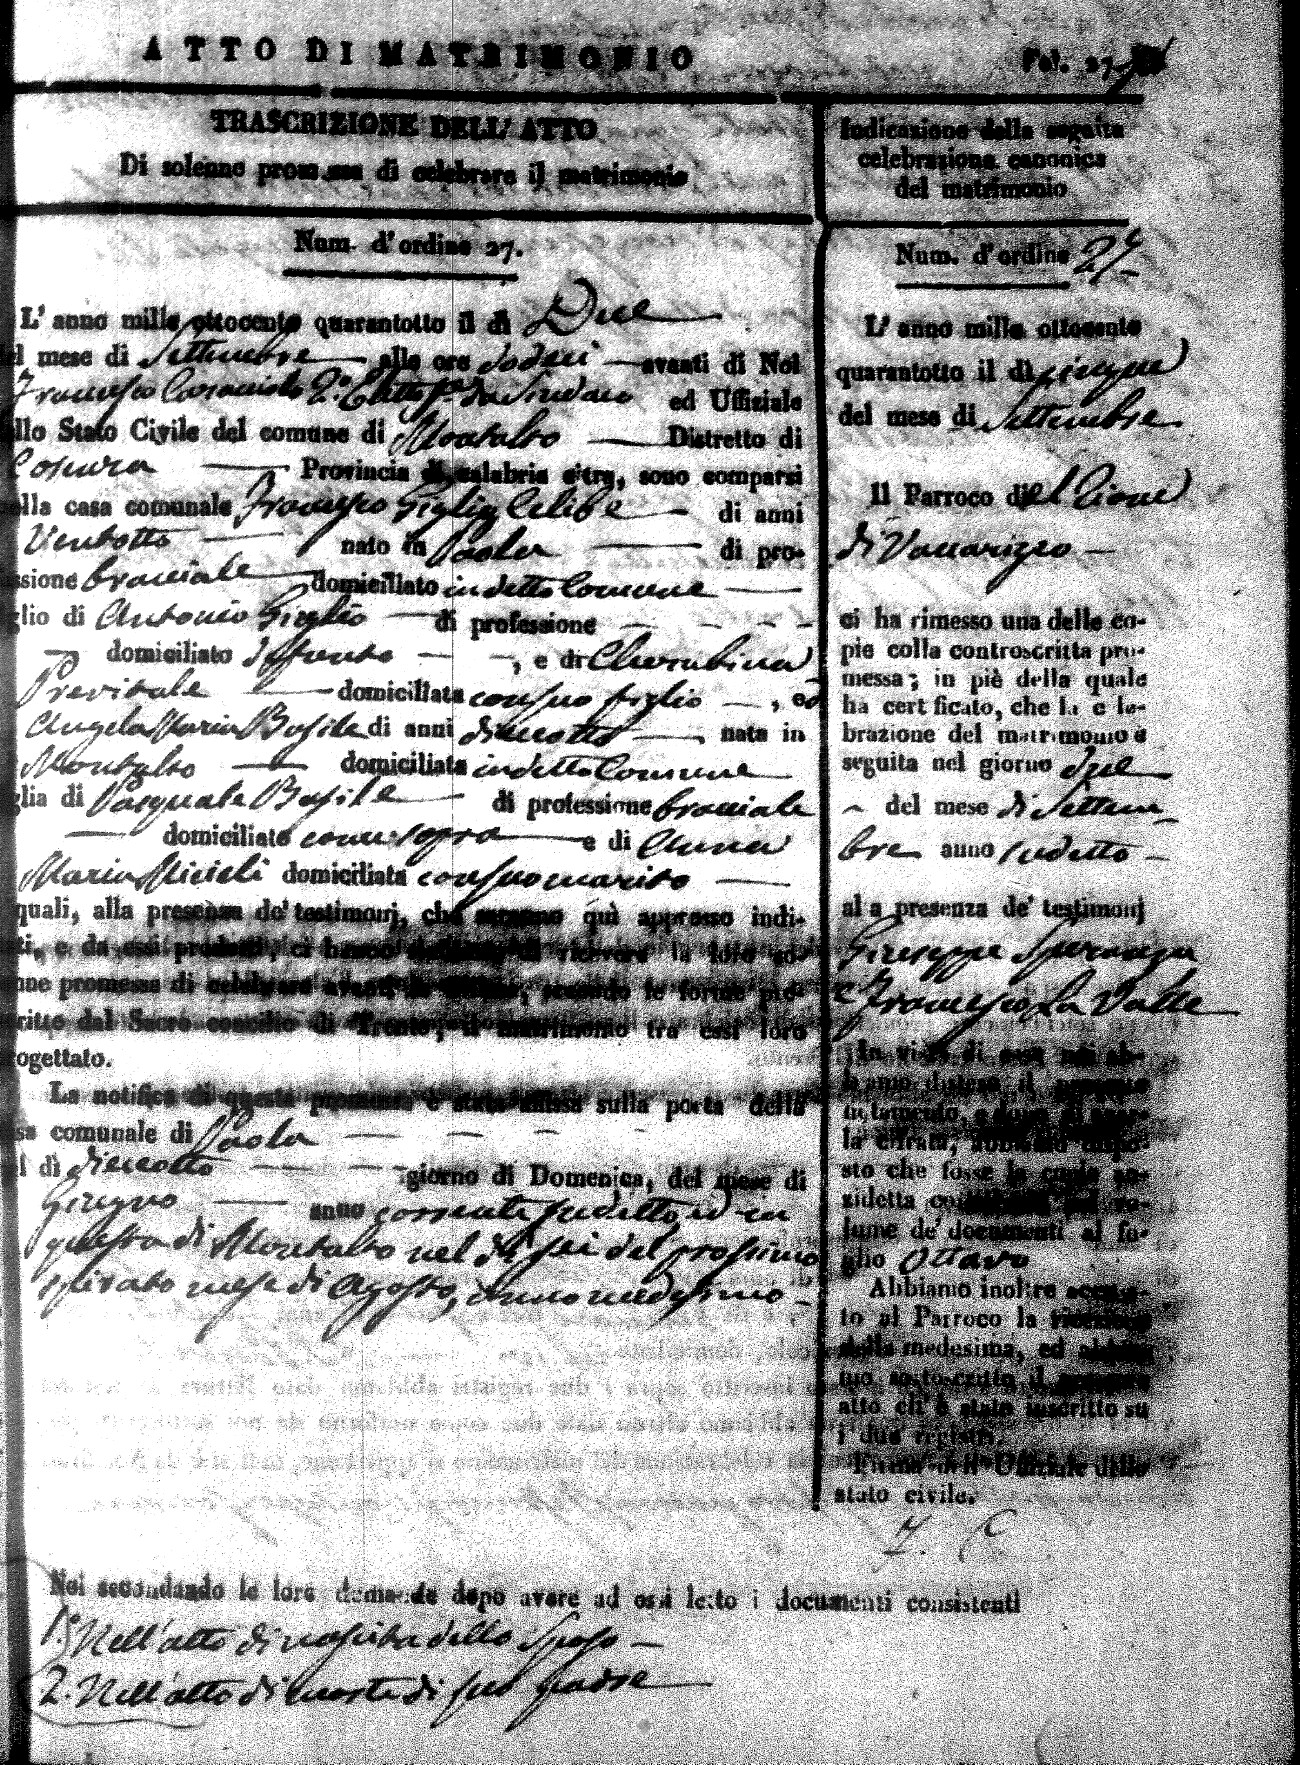 ATTO DI MATRIMONIO
Fol. 27
TRASCRIZIONE DELL' ATTO
Di solenne promessa di celebrare il matrimonio
Num. d'ordine 27.
L' anno mille ottocento quarantotto il di Due
del mese di Settembre alle ore dodeci avanti di Noi
Francesco 2.o Eletto ff.e da Sindaco ed Uffiziale
dello Stato Civile del comune di Montalto Distretto di
Cosenza Provincia di calabria citra, sono comparsi
nella casa comunale Francesco Giglio Celibe di anni
Ventotto nato in Paola di pro-
fessione bracciale domiciliato in detto Comune
figlio di Antonio Giglio di professione
domiciliato defunto , e di Cherubina
Previtale domiciliata con suo figlio , ed
Angela Maria Basile di anni dieciotto nata in
Montalto domiciliata in detto Comune
figlia di Pasquale Basile di professione bracciale
domiciliato come sopra e di Anna
Maria Micieli domiciliata con suo marito
quali, alla presenza de' testimonj, che saranno quì appresso indi-
cati, e da essi prodotti, ci hanno di ricevere la loro so-
lenne promessa di celebrare avanti la , secondo le forme pre-
scritte dal Sacro concilio di Trento, il matrimonio tra essi loro
progettato.
La notifica di questa promessa è stata affissa sulla porta della
casa comunale di Paola
il dì dieciotto giorno di Domenica, del mese di
Giugno anno corrente sudetto, ed in
questa di Montalto nel dì sei del prossimo
spirato mese di Agosto, anno medesimo
Indicazione della seguita
celebrazione canonica
del matrimonio
Num. d'ordine 27
L' anno mille ottocento
quarantotto il dì cinque
del mese di Settembre
Il Parroco di
di Vaccarizzo
ci ha rimesso una delle co-
pie colla controscritta pro-
messa; in piè della quale
ha certificato, che la cele-
brazione del matrimonio è
seguita nel giorno due
del mese di Settem
bre anno sudetto
alla presenza de' testimonj
Giuseppe Speranza
e Francesco La Valle
In vista di essa noi ab-
biamo disteso il presente
notamento, e dopo di aver-
la cifrata, abbiamo dispo-
sto che fosse la copia an-
zidetta vo-
lume de' documenti al fo-
glio ottavo
Abbiamo inoltre accusa-
to al Parroco la ricezione
della medesima, ed abbia-
mo sottoscritto il presente
atto ch' è stato inscritto su
i due registri.
Firma dell' Uffiziale dello
stato civile.
Noi secondando le loro domande dopo avere ad essi letto i documenti consistenti
1.o Nell'atto di nascita dello Sposo
2. Nell'atto di morte di suo padre